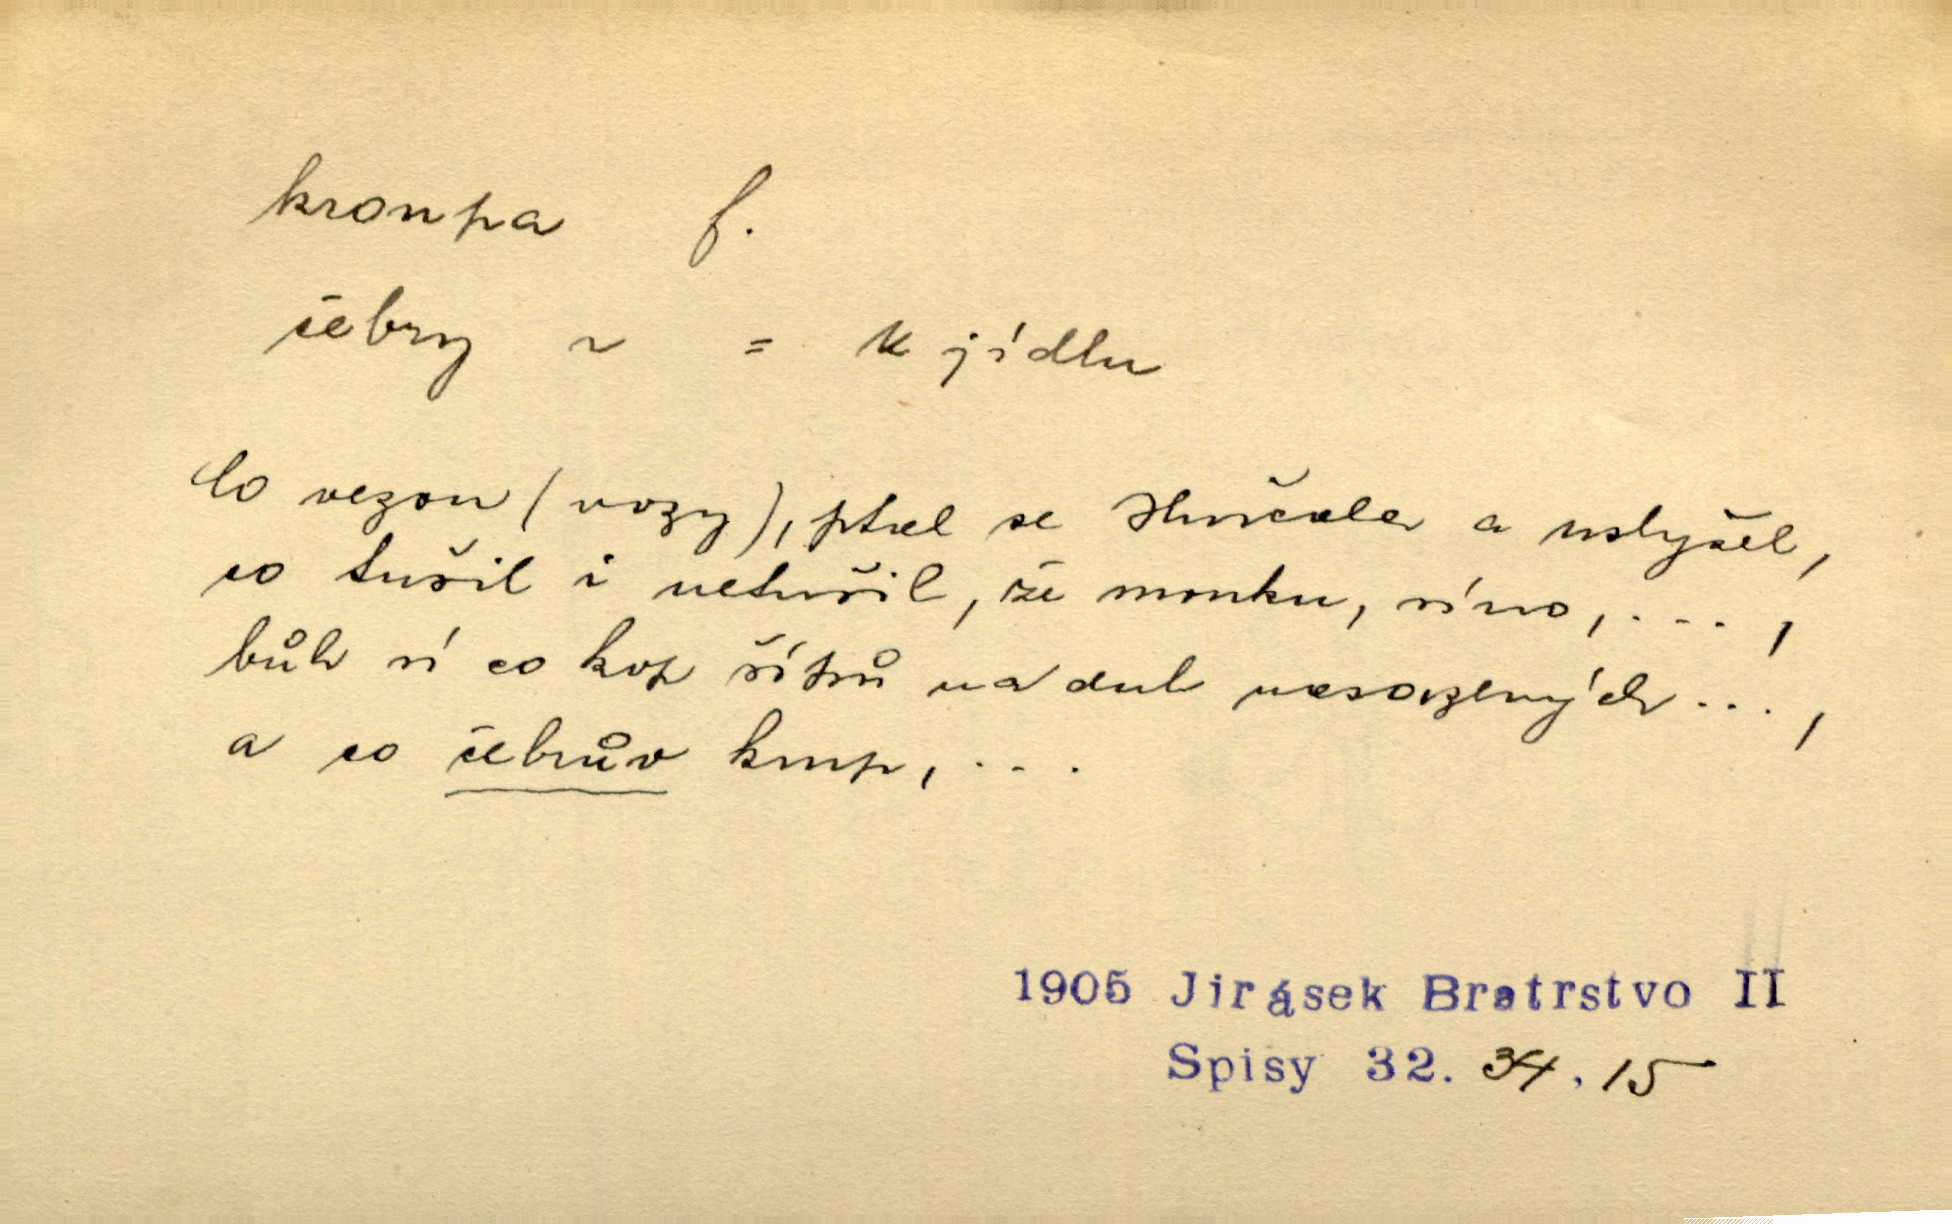 kroupa f.
čebry ~ = k jídlu
Co vezou (vozy), ptal se Hvězda a uslyšel,
co tušil i netušil, že mouku, víno, . . . ,
bůh ví co kop štítů na dub nasazených . . . ,
a co čebrův krup, . . .
1905 Jirásek Bratrstvo II
Spisy 32. 34. 15